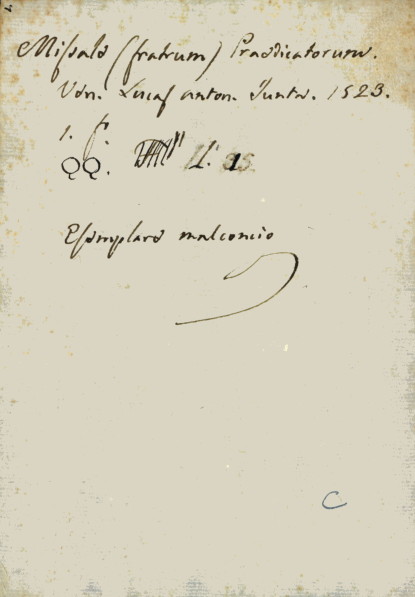 Missale (fratrum) Praedicatorum.
Ven. Lucas anton. Junta. 1523.
1. f.
QQ. L. 35.
Esemplare malconcio
C